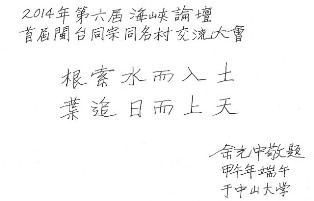 2014年第六屆海峽論壇
首屆閩台同宗同名村交流大會
根索水而入土
葉追日而上天
余光中敬題
甲午年端午
于中山大学